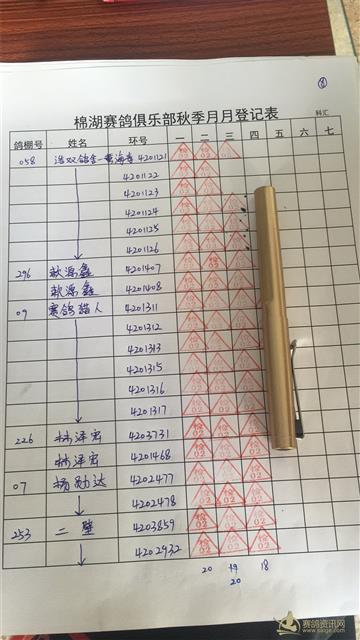 ⑧
棉湖赛鸽俱乐部秋季月月登记表
科汇
鸽棚号 姓名 环号 一 二 三 四 五 六 七
058 4201121
4201122
4201123
4201124
4201125
4201126
296 歆源鑫 4201407
歆源鑫 4201408
09 赛鸽猎人 4201311
4201312
4201313
4201315
4201316
4201317
226 林泽宏 4203731
林泽宏 4201468
07 杨勋达 4202477
4202478
253 二壁 4203859
4202932
20 19 18
20
赛鸽资讯网
www.saige.com